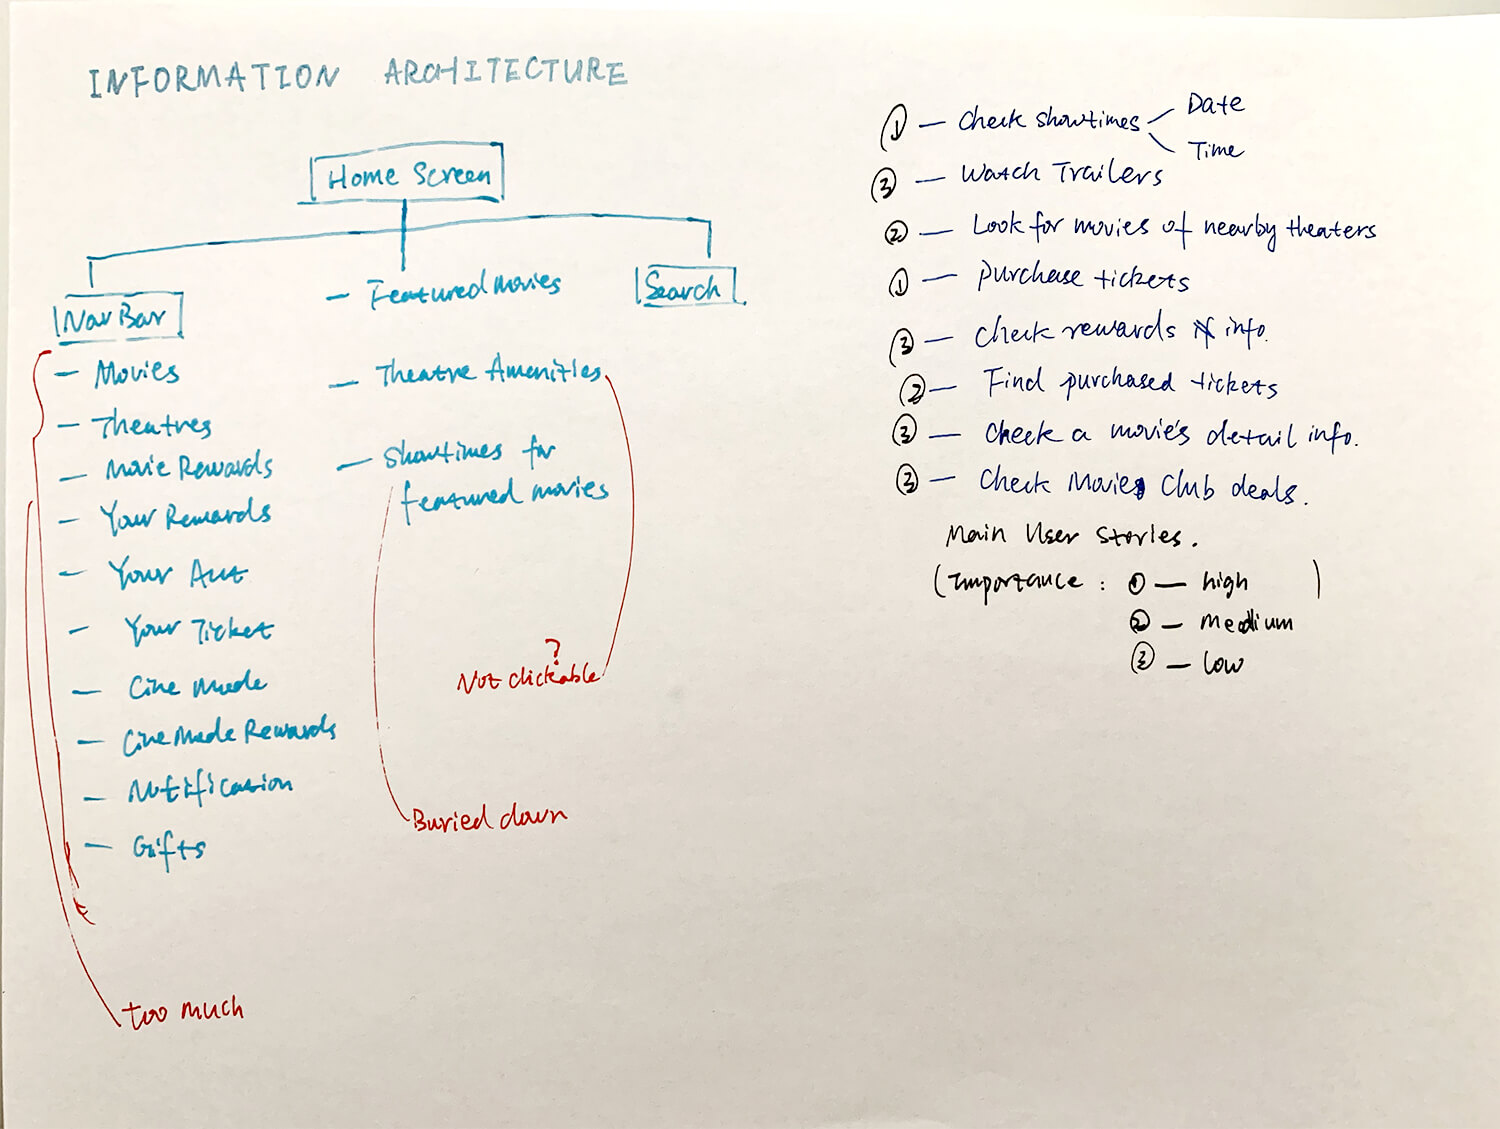 INFORMATION ARCHITECTURE
Home Screen
Nav Bar
— Movies
— Theatres
— Movie Rewards
— Your Rewards
— Your Acct
— Your Ticket
— Cine Mode
— Cine Mode Rewards
— Notification
— Gifts
too much
— Featured movies
— Theatre Amenities
— Showtimes for
featured movies
?
Not clickable
Buried down
Search
① — Check showtimes
Date
Time
③ — Watch Trailers
② — Look for movies of nearby theaters
① — purchase tickets
③ — Check rewards info.
② — Find purchased tickets
③ — Check a movie's detail info.
③ — Check Movie Club deals.
Main User Stories.
(Importance : ① — high )
② — medium
③ — low